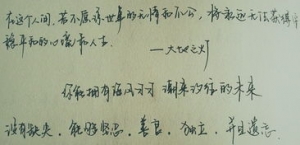 在这个人间，若不原谅世事的无情和不公，将永远无法获得
平和的心境和人生。
——大地之灯
你能拥有海风习习 潮来汐往的未来
没有缺失，能够坚忍，善良，独立，并且遗忘.